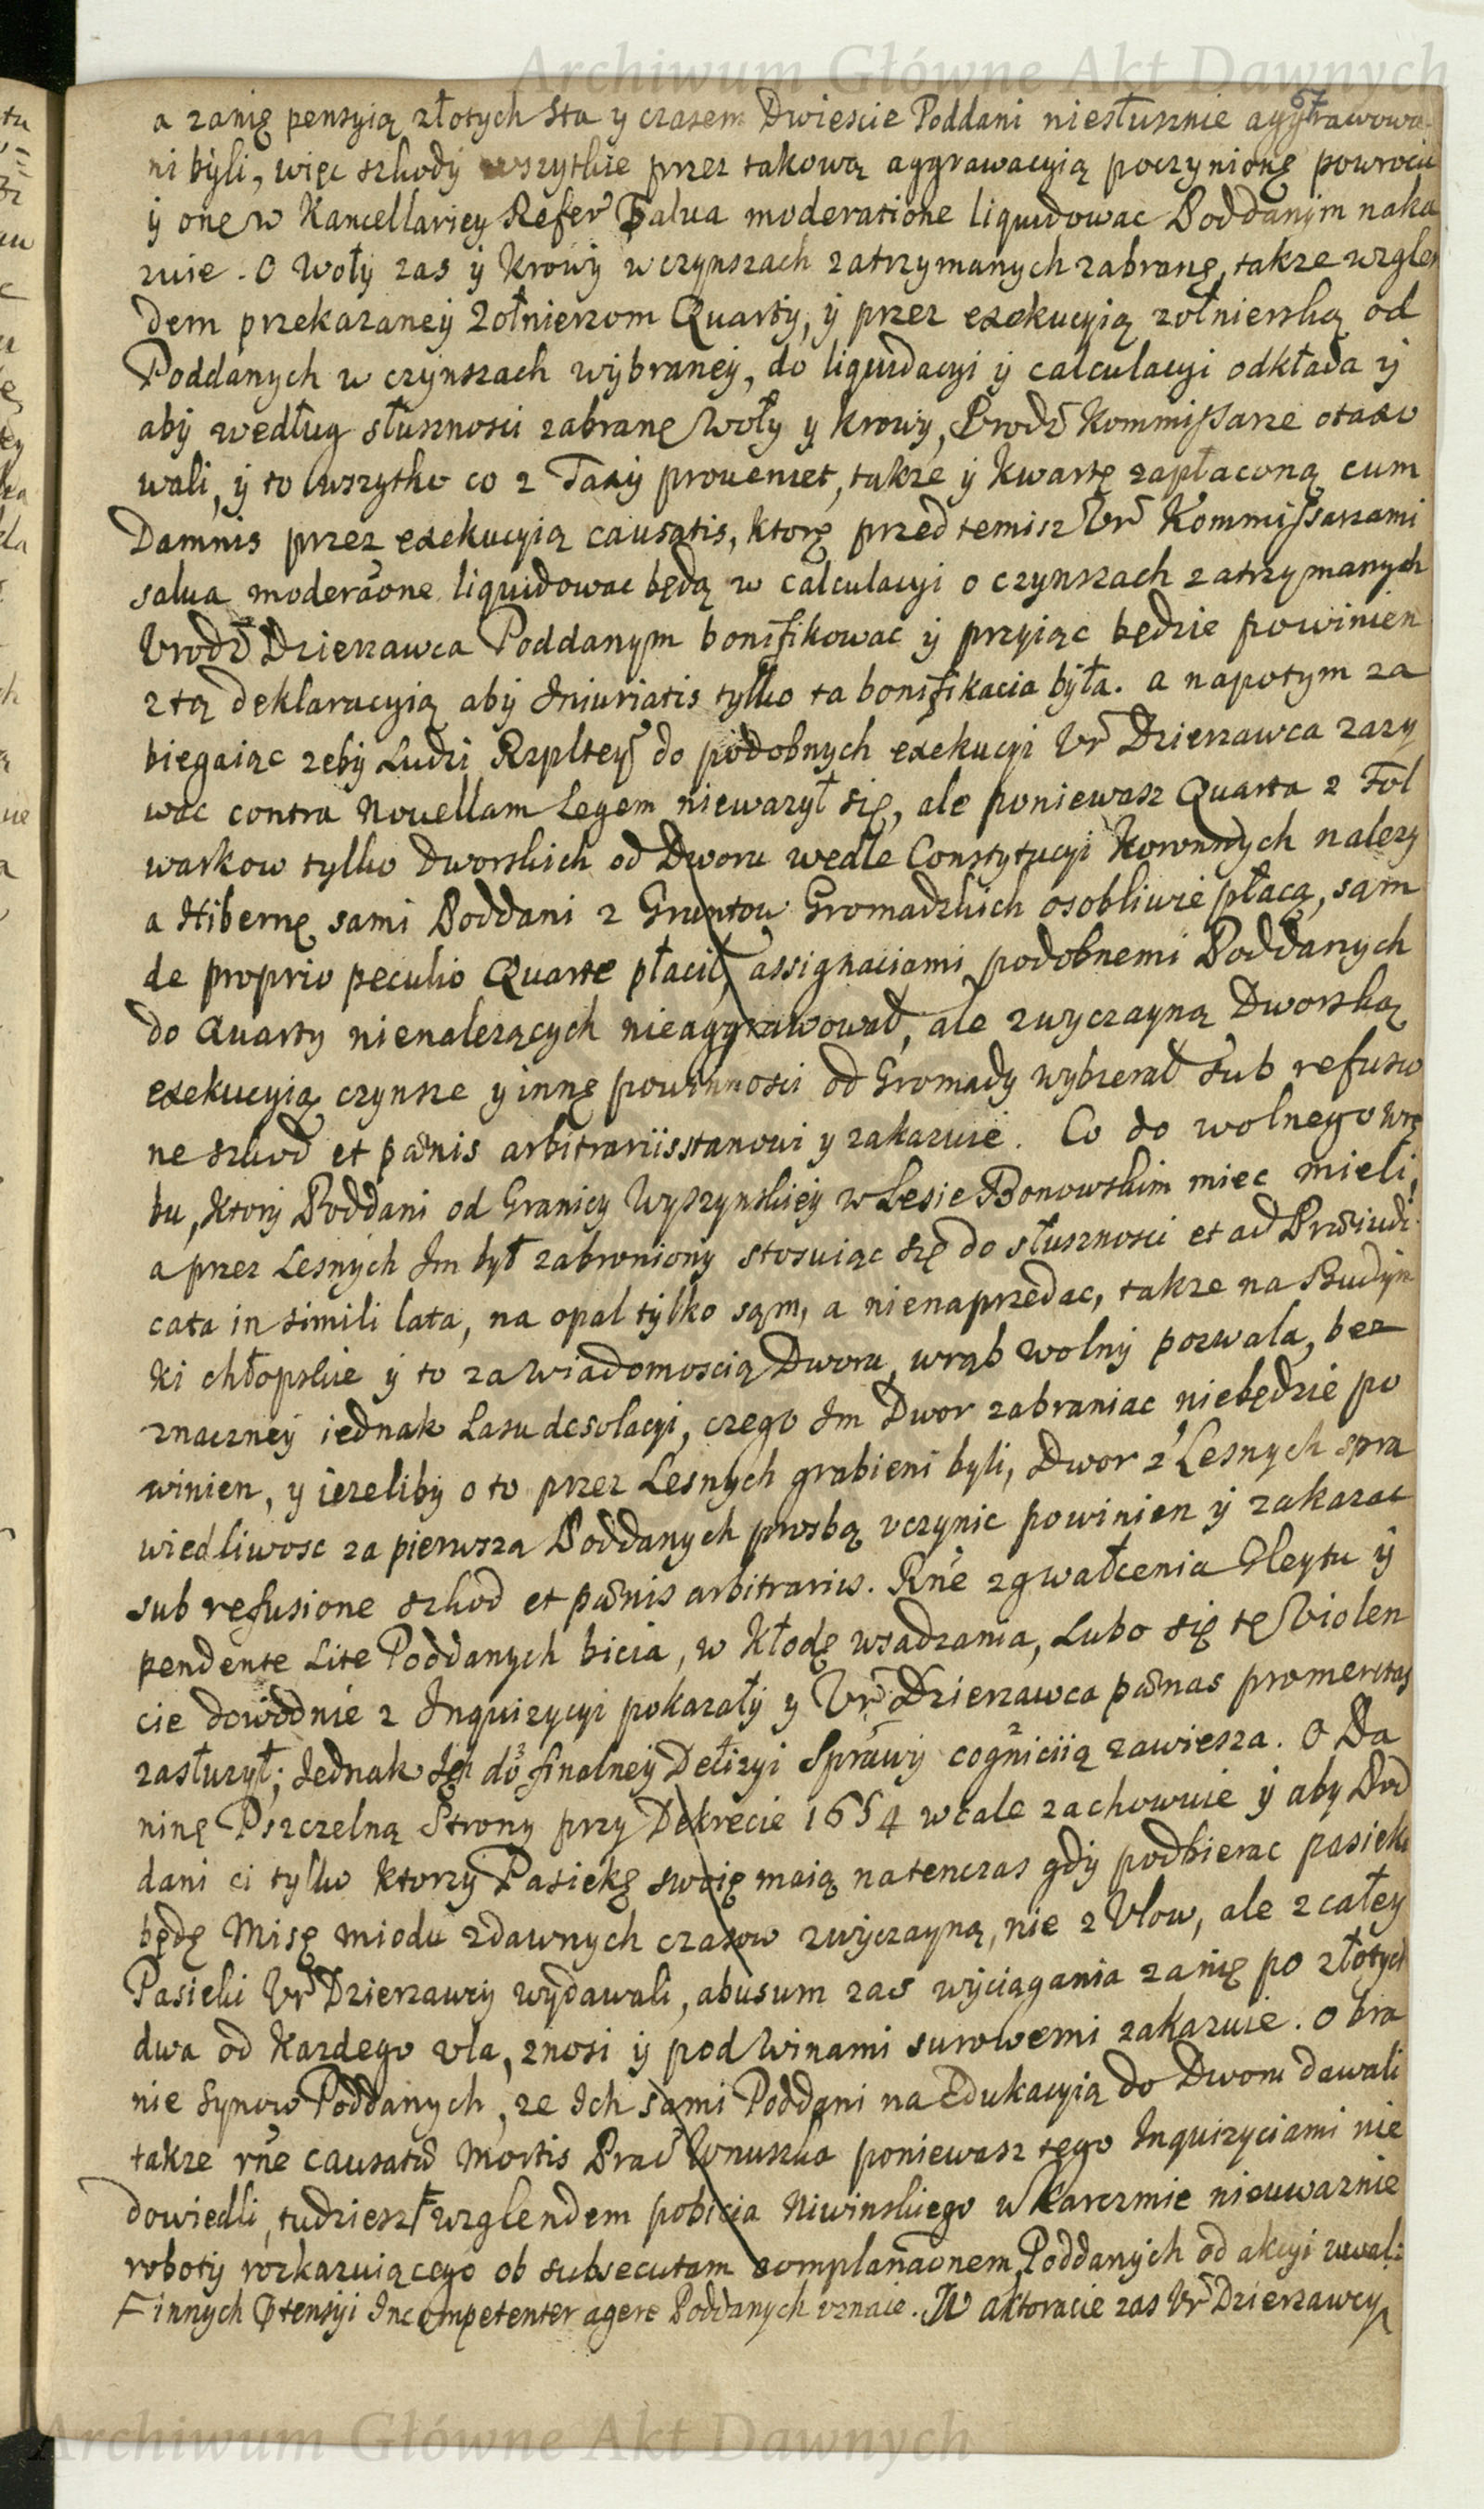 Archiwum Główne Akt Dawnych
a zanię pensyią złotych sta y czasem Dwiescie Poddani niesłusznie aggrawowa
ni byli, więc szkody wszytkie przez takową aggrawacyią poczynionę powrocic
ÿ onę w Kancellariey Refer Salua moderatione liquidowac Poddanÿm naka
zuie. O Woły zas ÿ Krowÿ w czynszach zatrzymanych zabranę, takze wzglen
dem przekazaneÿ Zołnierzom Quarty, ÿ przez exekucyią zołnierską od
Poddanych w czynszach wybraneÿ, do liquidacyi ÿ calculacyi odkłada ÿ
abÿ według słusznosci zabranę Woły y Krowÿ, Vrodź Kommissarze otaxo
wali, ÿ to wszytko co z Taxÿ proueniet, takze ÿ Kwartę zapłaconą cum
Damnis przez exekucyią causatis, ktorę przed temisz Vr Kommissarzami
salua moderaone liquidowac będą w calculacyi o czynszach zatrzymanych
Vrodź Dzierzawca Poddanym bonifikowac ÿ przyiąc będzie powinien
z tą deklaracyią abÿ Iniuriatis tylko ta bonifikacia była. a napotym za
biegaiąc zebÿ Ludzi Rzpltey do podobnych exekucyi Vr Dzierzawca zazy
wac contra Nouellam Legem niewazył się, ale poniewasz Quarta z Fol
warkow tylko Dworskich od Dworu wedle Constytucyi Koronnych nalezy
a Hibernę sami Poddani z Gruntow Gromadzkich osobliwie płacą, sam
de proprio peculio Quarte płacił, assignaciami podobnemi Poddanych
do Quarty nienalezących nieaggrawował, ale zwyczayną Dworską
exekucyią czynsze y innę powinnosci od Gromady wybierał sub refusio
ne szkod et pœnis arbitrariis stanowi y zakazuie. Co do wolnego wrę
bu, ktorÿ Poddani od Granicy Wyszynskiey w Lesie Bonowskim miec mieli,
a przez Lesnych Im był zabroniony stosuiąc się do słusznosci et ad Præiudi
cata in simili lata, na opal tylko sąm, a nienaprzedac, takze na Budÿn
ki chłopskie ÿ to za wiadomoscią Dworu, wrąb wolny pozwala, bez
znaczneÿ iednak Lasu desolacyi, czego Im Dwor zabraniac niebędzie po
winien, y iezelibÿ o to przez Lesnych grabieni byli, Dwor z Lesnych spra
wiedliwosc za pierwsza Poddanych prosbą vczynic powinien ÿ zakazac
sub refusione szkod et pœnis arbitrariis. Rne zgwałcenia Gleytu ÿ
pendente Lite Poddanych bicia, w Kłodę wsadzania, Lubo się tę Violen
cie dowodnie z Inquizycyi pokazały y Vr Dzierzawca pœnas promeritas
zasłuzył; Jednak Ich do finalneÿ Decizyi Sprawÿ cogniciią zawiesza. O Da
ninę Pszczelną Strony przy Dekrecie 1654 wcale zachowuie ÿ aby Pod
dani ci tylko ktorzy Pasiekę swoię maią natenczas gdÿ podbierac pasieki
będę Misę miodu zdawnych czasow zwyczayną, nie z Vlow, ale z całey
Pasieki Vr Dzierzawcy wydawali, abusum zas wyciągania zanię po złotych
dwa od kazdego vla, znosi ÿ pod Winami surowemi zakazuie. O bra
nie Synow Poddanych, ze Ich sami Poddani na Edukacyią do Dworu dawali
takze rne causatæ Mortis Prac Wnuszka poniewasz tego Inquizyciami nie
dowiedli, tudziesz F wzglendem pobicia Niwinskiego w Karczmie nieuwaznie
robotÿ rozkazuiącego ob subsecutam complanaonem Poddanych od akcyi uwal:
F innych Ptensÿi Incompetenter agere Poddanych vznaie. W aktoracie zas Vr Dzierzawcy
Archiwum Główne Akt Dawnych